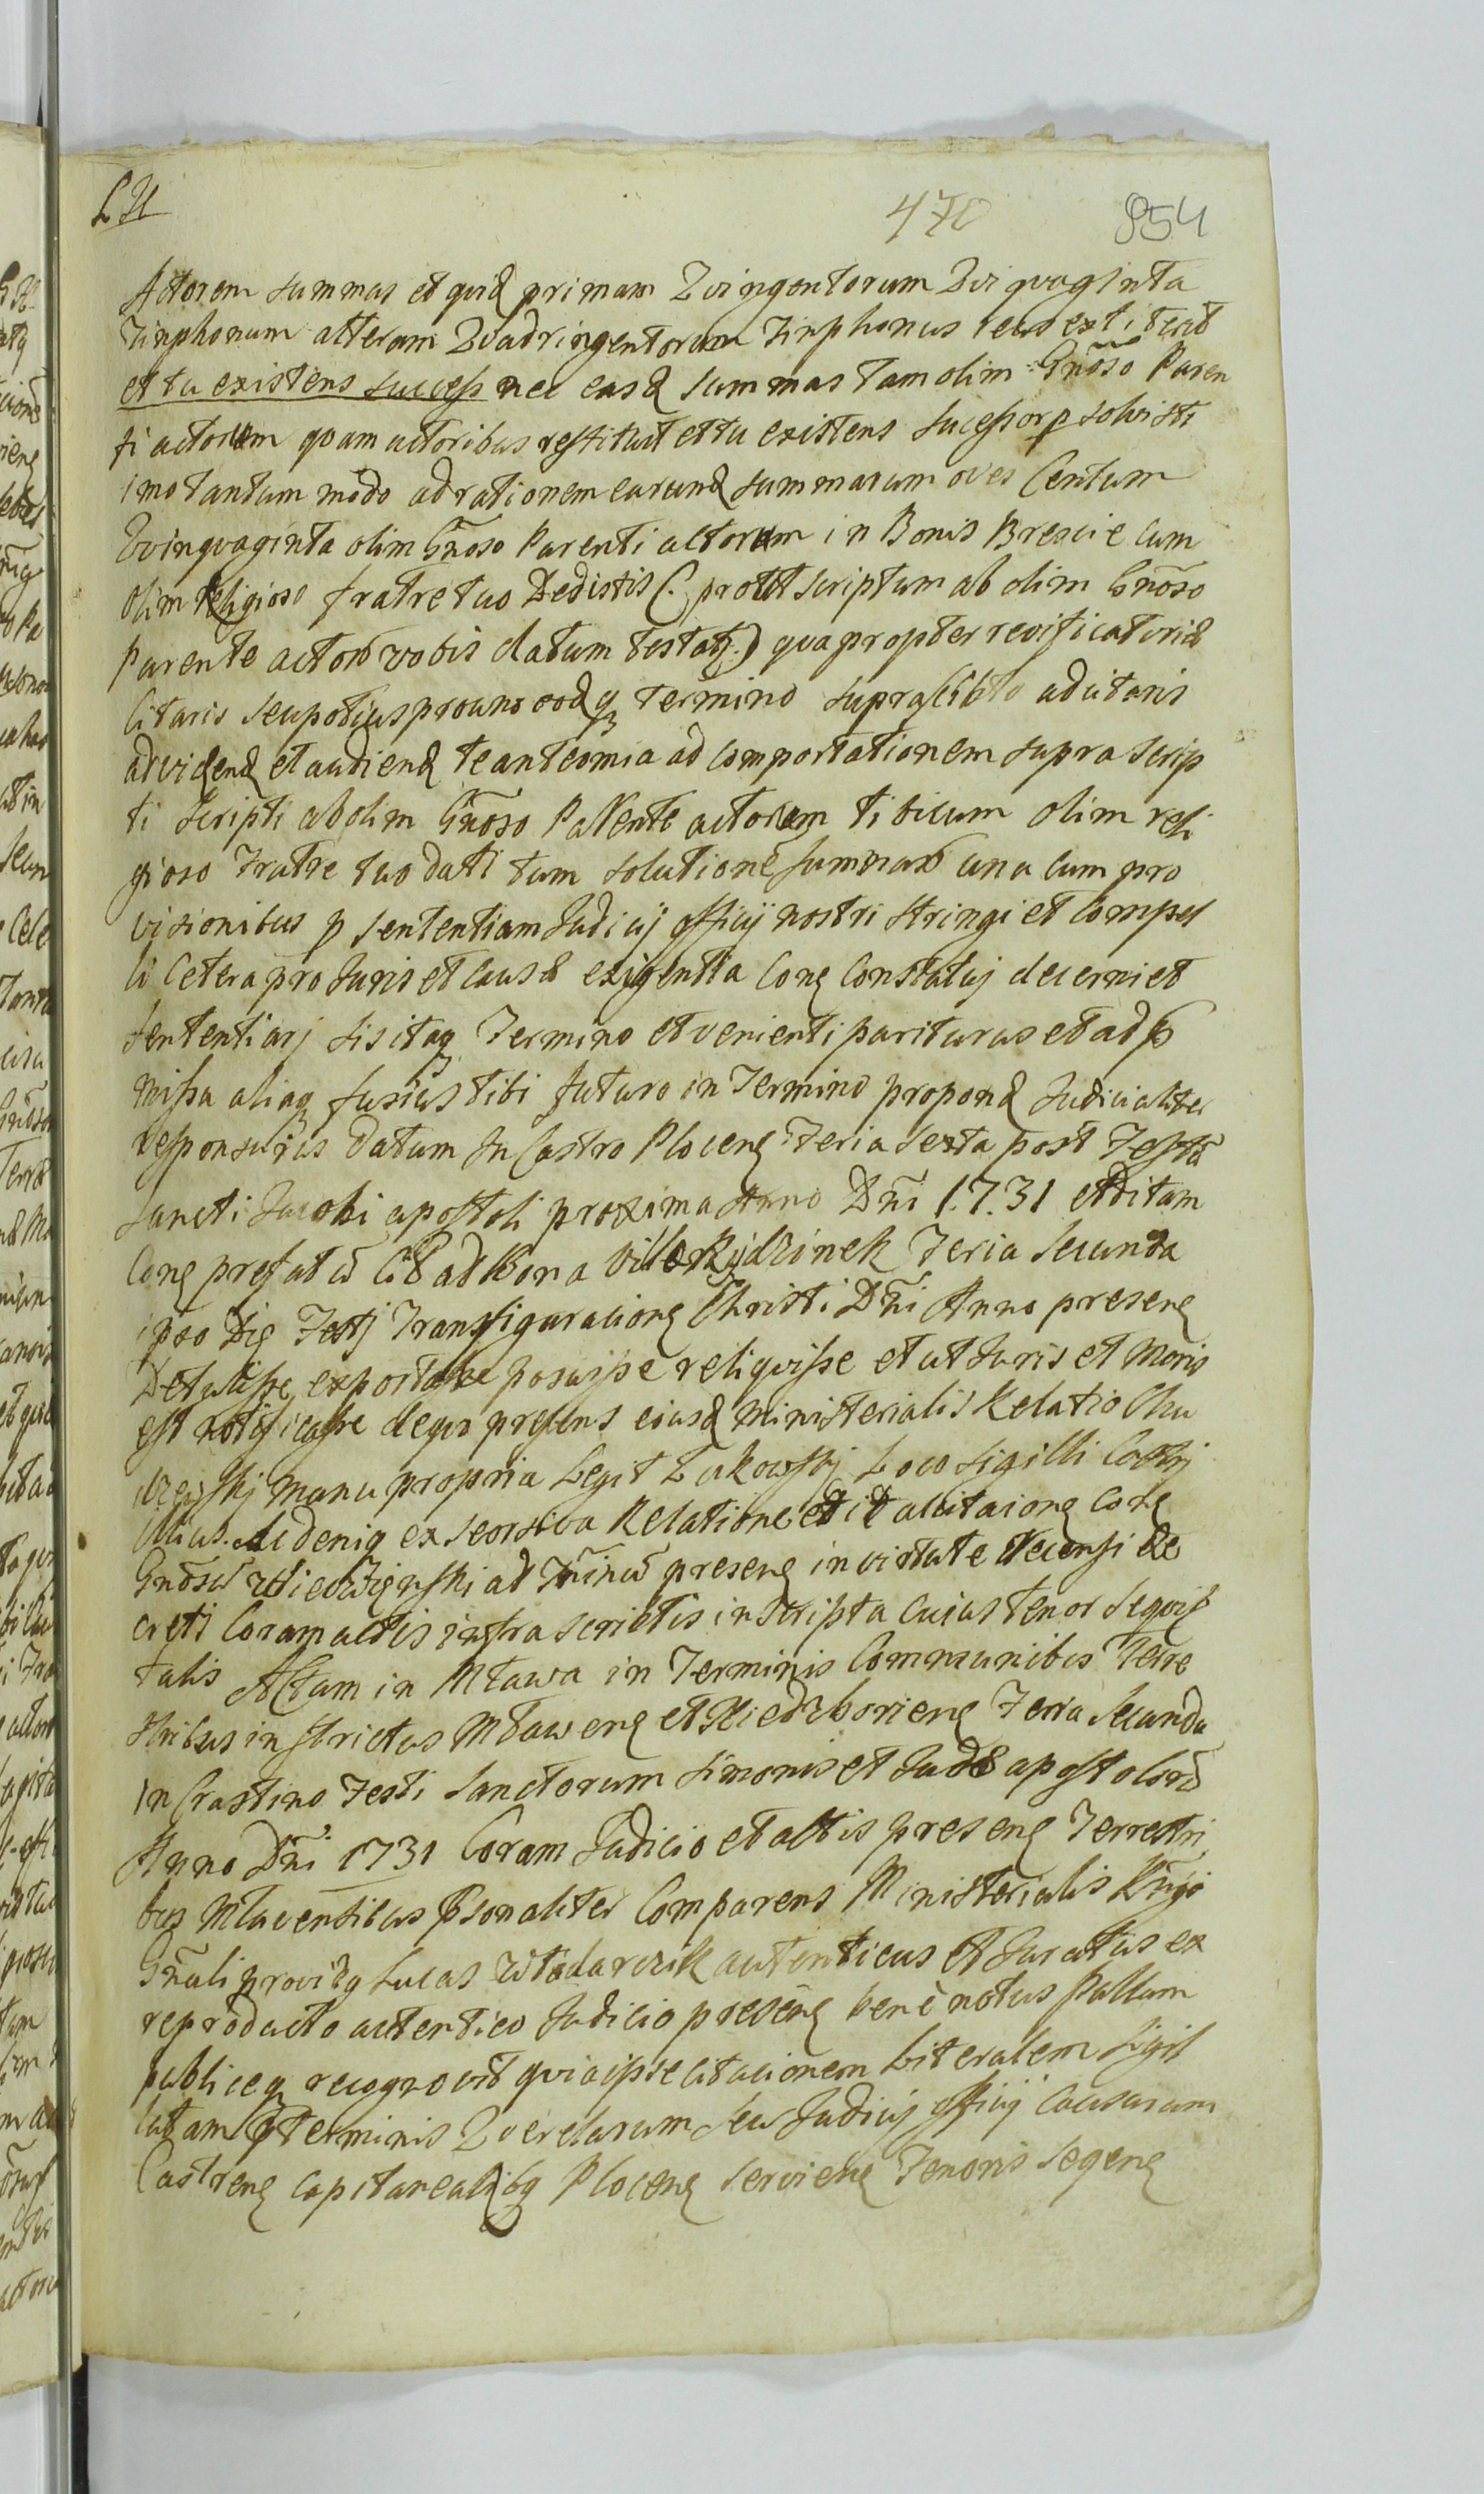 LH
470 854
Actorem summas et quid primam Quingentorum Quiquaginta
Tinphonum alteram Quadringentorum Tinphonus reus extiterit
et tu existens success nec easd summas tam olim Gnoso Paren
ti actorum quam actoribus restituit et tu existens sucessor p solvisti
imo tantum modo ad rationem earund summarum oves Centum
Quinquaginta olim Gnoso Parenti actorum in Bonis Brescie cum
olim Religioso fratre tuo Dedistis (. prout scriptum ab olim Gnoso
Parente actorum vobis datum testatr .) qua propter
Citaris seu potius pro uno eodq termino suprascibto adcitaris
ad vidend et audiend te ante omia ad comportationem supra scrip
ti Scripti ab olim Gnoso Parente actorum tibi cum olim reli
gioso Fratre tuo dati tum solutione summarum una cum pro
visionibus p sententiam Judicij officij nostri stringi et compel
li Cetera pro Juris et causae exigentia Conq Constatuj decerni et
sententiarj sis itaq Termino et venienti pariturus et ad p
missa aliaq fusius tibi futuro in Termino propond Judicialiter
responsurus Datum In Castro Ploceng Feria sexta post Festu
Sancti Jacobi apostoli proxima Anno Dni 1.7.31 et ditam
Cong prefatu ad Bona Villae Feria Secunda
ipso Die Festj Transfiguracionq Christi Dni Anno preseng
Detulisse exportasse posuisse reliquisse et ut Juris et Moris
est notificasse dequo presens eiusd ministerialis Relatio Chu
dzynskj manu propria Legit Lukowskj Loco Sigilli
illius. Ac deniq ex seorsiva Relatione
Gnosu ad Tminu preseng in virtute recensi De
creti Coram actis infra scriptis inscripta cuius tenor sequit
talis Actum in Mlawa in Terminis Communibus Terre
stribus instrictus Mlaweng et Niedzboriene Feria Secunda
in Crastino Festi Sanctorum Simonis et Judae apostoloru
Anno Dni 1731 Coram Judicio et actis preseng Terrestri
bus Mlavensibus Psonaliter Comparens Ministerialis
Gnali providq Lucas Wlodarczik autenticus et Juratus ex
reproducto autentico Judicio preseng bene notus Pallam
publiceq recognovit qvia ipse citacionem Literalem Sigil
latam p terminis Querelarum seu Judicij officij causarum
Castreng capitanealibq Ploceng Servieng Tenoris Seqeng